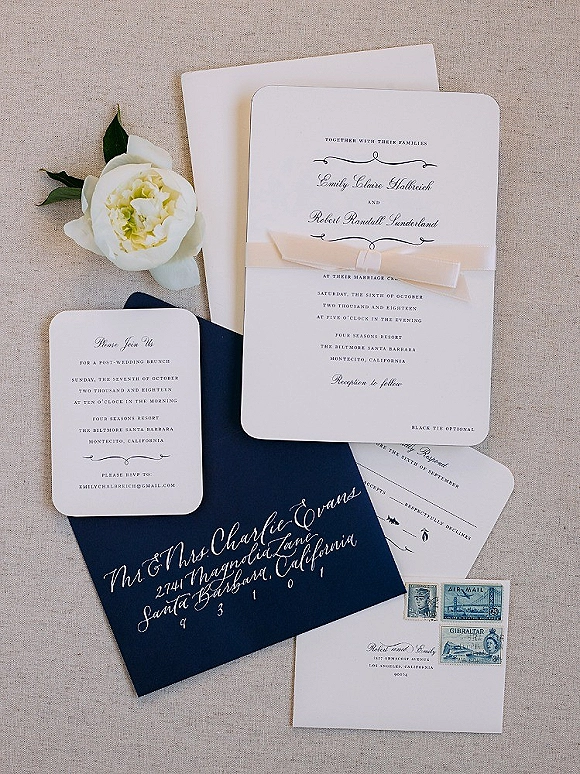 TOGETHER WITH THEIR FAMILIES
Emily Claire Halbreich
AND
Robert Randall Sunderland
AT THEIR MARRIAGE
SATURDAY, THE SIXTH OF OCTOBER
TWO THOUSAND AND EIGHTEEN
AT FIVE O'CLOCK IN THE EVENING
FOUR SEASONS RESORT
THE BILTMORE SANTA BARBARA
MONTECITO, CALIFORNIA
Reception to follow
BLACK TIE OPTIONAL
Please Join Us
FOR A POST-WEDDING BRUNCH
SUNDAY, THE SEVENTH OF OCTOBER
TWO THOUSAND AND EIGHTEEN
AT TEN O'CLOCK IN THE MORNING
FOUR SEASONS RESORT
THE BILTMORE SANTA BARBARA
MONTECITO, CALIFORNIA
PLEASE RSVP TO:
EMILYCHALBREICH@GMAIL.COM
Respond
SIXTH OF SEPTEMBER
ACCEPTS RESPECTFULLY DECLINES
Mr & Mrs Charlie Evans
2741 Magnolia Lane
Santa Barbara, California
9 3 1 0 1
AIR MAIL
GIBRALTAR
Robert and Emily
LOS ANGELES, CALIFORNIA